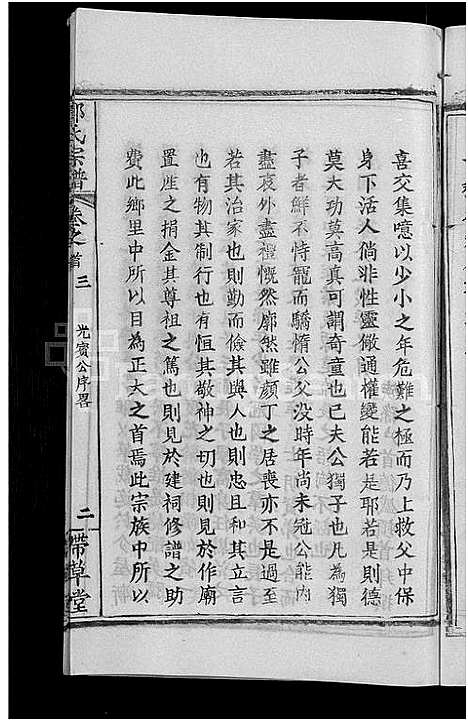 喜交集噫以少小之年危難之極而乃上救父中保
身下活人倘非性靈儆通權變能若是耶若是則德
莫大功莫高真可謂奇童也已夫公獨子也凡為獨
子者鮮不恃寵而驕惰公父没時年尚未冠公能内
盡哀外盡禮慨然廓然雖顏丁之居喪亦不是過至
若其治家也則勤而儉其與人也則忠且有其立言
也有物其制行也有恆其敬神之切也則見於作廟
置产之捐金其尊祖之篤也則見於建祠修譜之助
費此鄉里中所以目為正大之首焉此宗族中所以
氏宗譜 卷之首 三 光賓公序畧 二 帶草堂